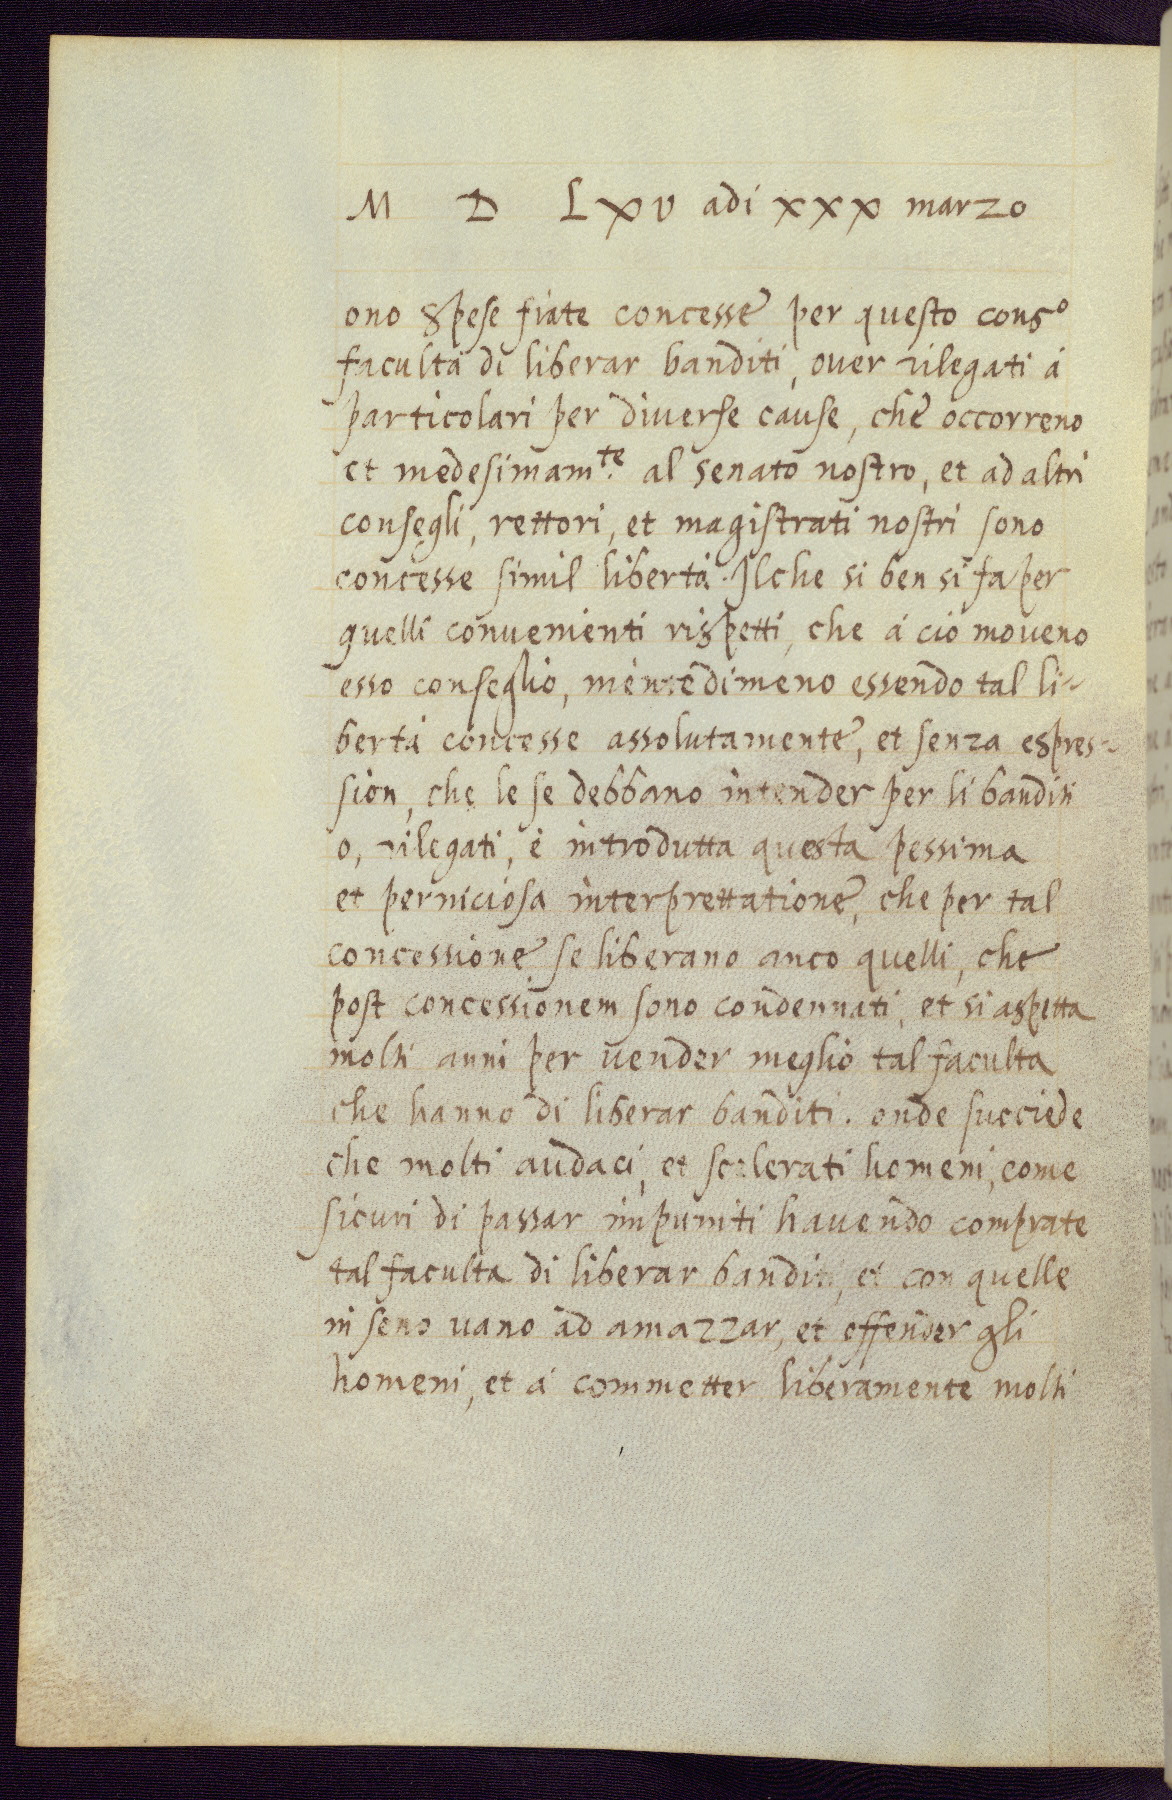 M D LXV adi xxx marzo
ono spese fiate concesse per questo cons.º
facultà di liberar banditi, ouer rilegati á
particolari per diverse cause, che occorreno
et medesimam.te al senato nostro, et ad altri
consegli, rettori, et magistrati nostri sono
concesse simil libertà. Ilche si ben si fa per
quelli conuenienti rispetti, che á ciò moueno
esso conseglio, mentedimeno essendo tal li-
bertà concesse assolutamente, et senza espres-
sion, che le se debbano intender per li banditi
o, rilegati, è introdutta questa pessima
et perniciosa interprettatione, che per tal
concessione se liberano anco quelli, che
post concessionem sono condennati, et si aspetta
molti anni per uender meglio tal faculta
che hanno di liberar banditi. onde succiede
che molti audaci, et scelerati homeni, come
sicuri di passar impuniti hauendo comprate
tal faculta di liberar banditi, et con quelle
in seno uano ad amazzar, et offender gli
homeni, et á commetter liberamente molti